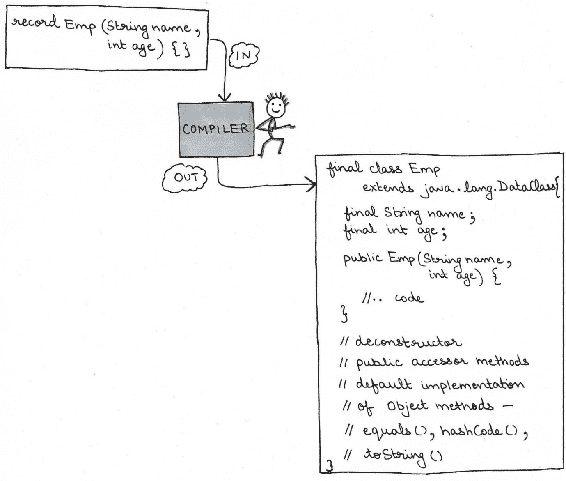 record Emp (String name,
int age) { }
IN
COMPILER
OUT
final class Emp
extends java.lang.DataClass{
final String name;
final int age;
public Emp(String name,
int age) {
//.. code
}
// deconstructor
// public accessor methods
// default implementation
// of Object methods —
// equals(), hashCode(),
// toString()
}